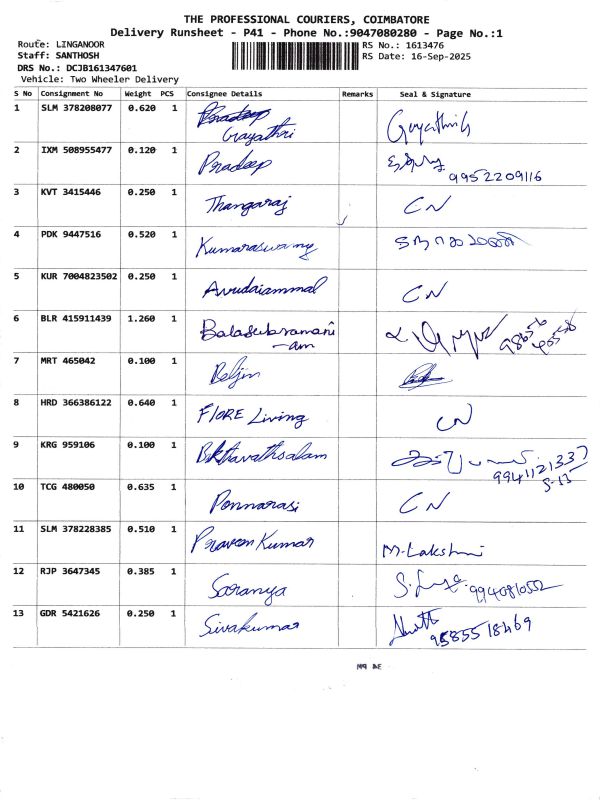 THE PROFESSIONAL COURIERS, COIMBATORE
Delivery Runsheet - P41 - Phone No.:9047080280 - Page No.:1
Route: LINGANOOR RS No.: 1613476
Staff: SANTHOSH RS Date: 16-Sep-2025
DRS No.: DCJB161347601
Vehicle: Two Wheeler Delivery
S No Consignment No Weight PCS Consignee Details Remarks Seal & Signature
1 SLM 378208077 0.620 1 Pradeep
Gayathri Gayathri
2 IXM 508955477 0.120 1 Pradeep
9952209116
3 KVT 3415446 0.250 1 Thangaraj CN
4 PDK 9447516 0.520 1 Kumaraswamy
5 KUR 7004823502 0.250 1 Avudaiammal CN
6 BLR 415911439 1.260 1 Balasubramani
-am
7 MRT 465042 0.100 1 Beljin
8 HRD 366386122 0.640 1 FLORE Living CN
9 KRG 959106 0.100 1 Bkthavathsalam
9941121337
10 TCG 480050 0.635 1 Ponnarasi CN
11 SLM 378228385 0.510 1 Praveen Kumar M.Lakshmi
12 RJP 3647345 0.385 1 Saranya 9940810552
13 GDR 5421626 0.250 1 Sivakumar
9585518469